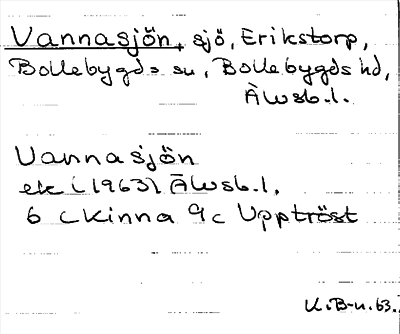 Vannasjön, sjö, Erikstorp,
Bollebygds sn, Bollebygds hd,
Älvsb.l.
Vannasjön
ek (1963) Älvsb.l.
6 c Kinna 9 c Upptröst
K.B-n.63.